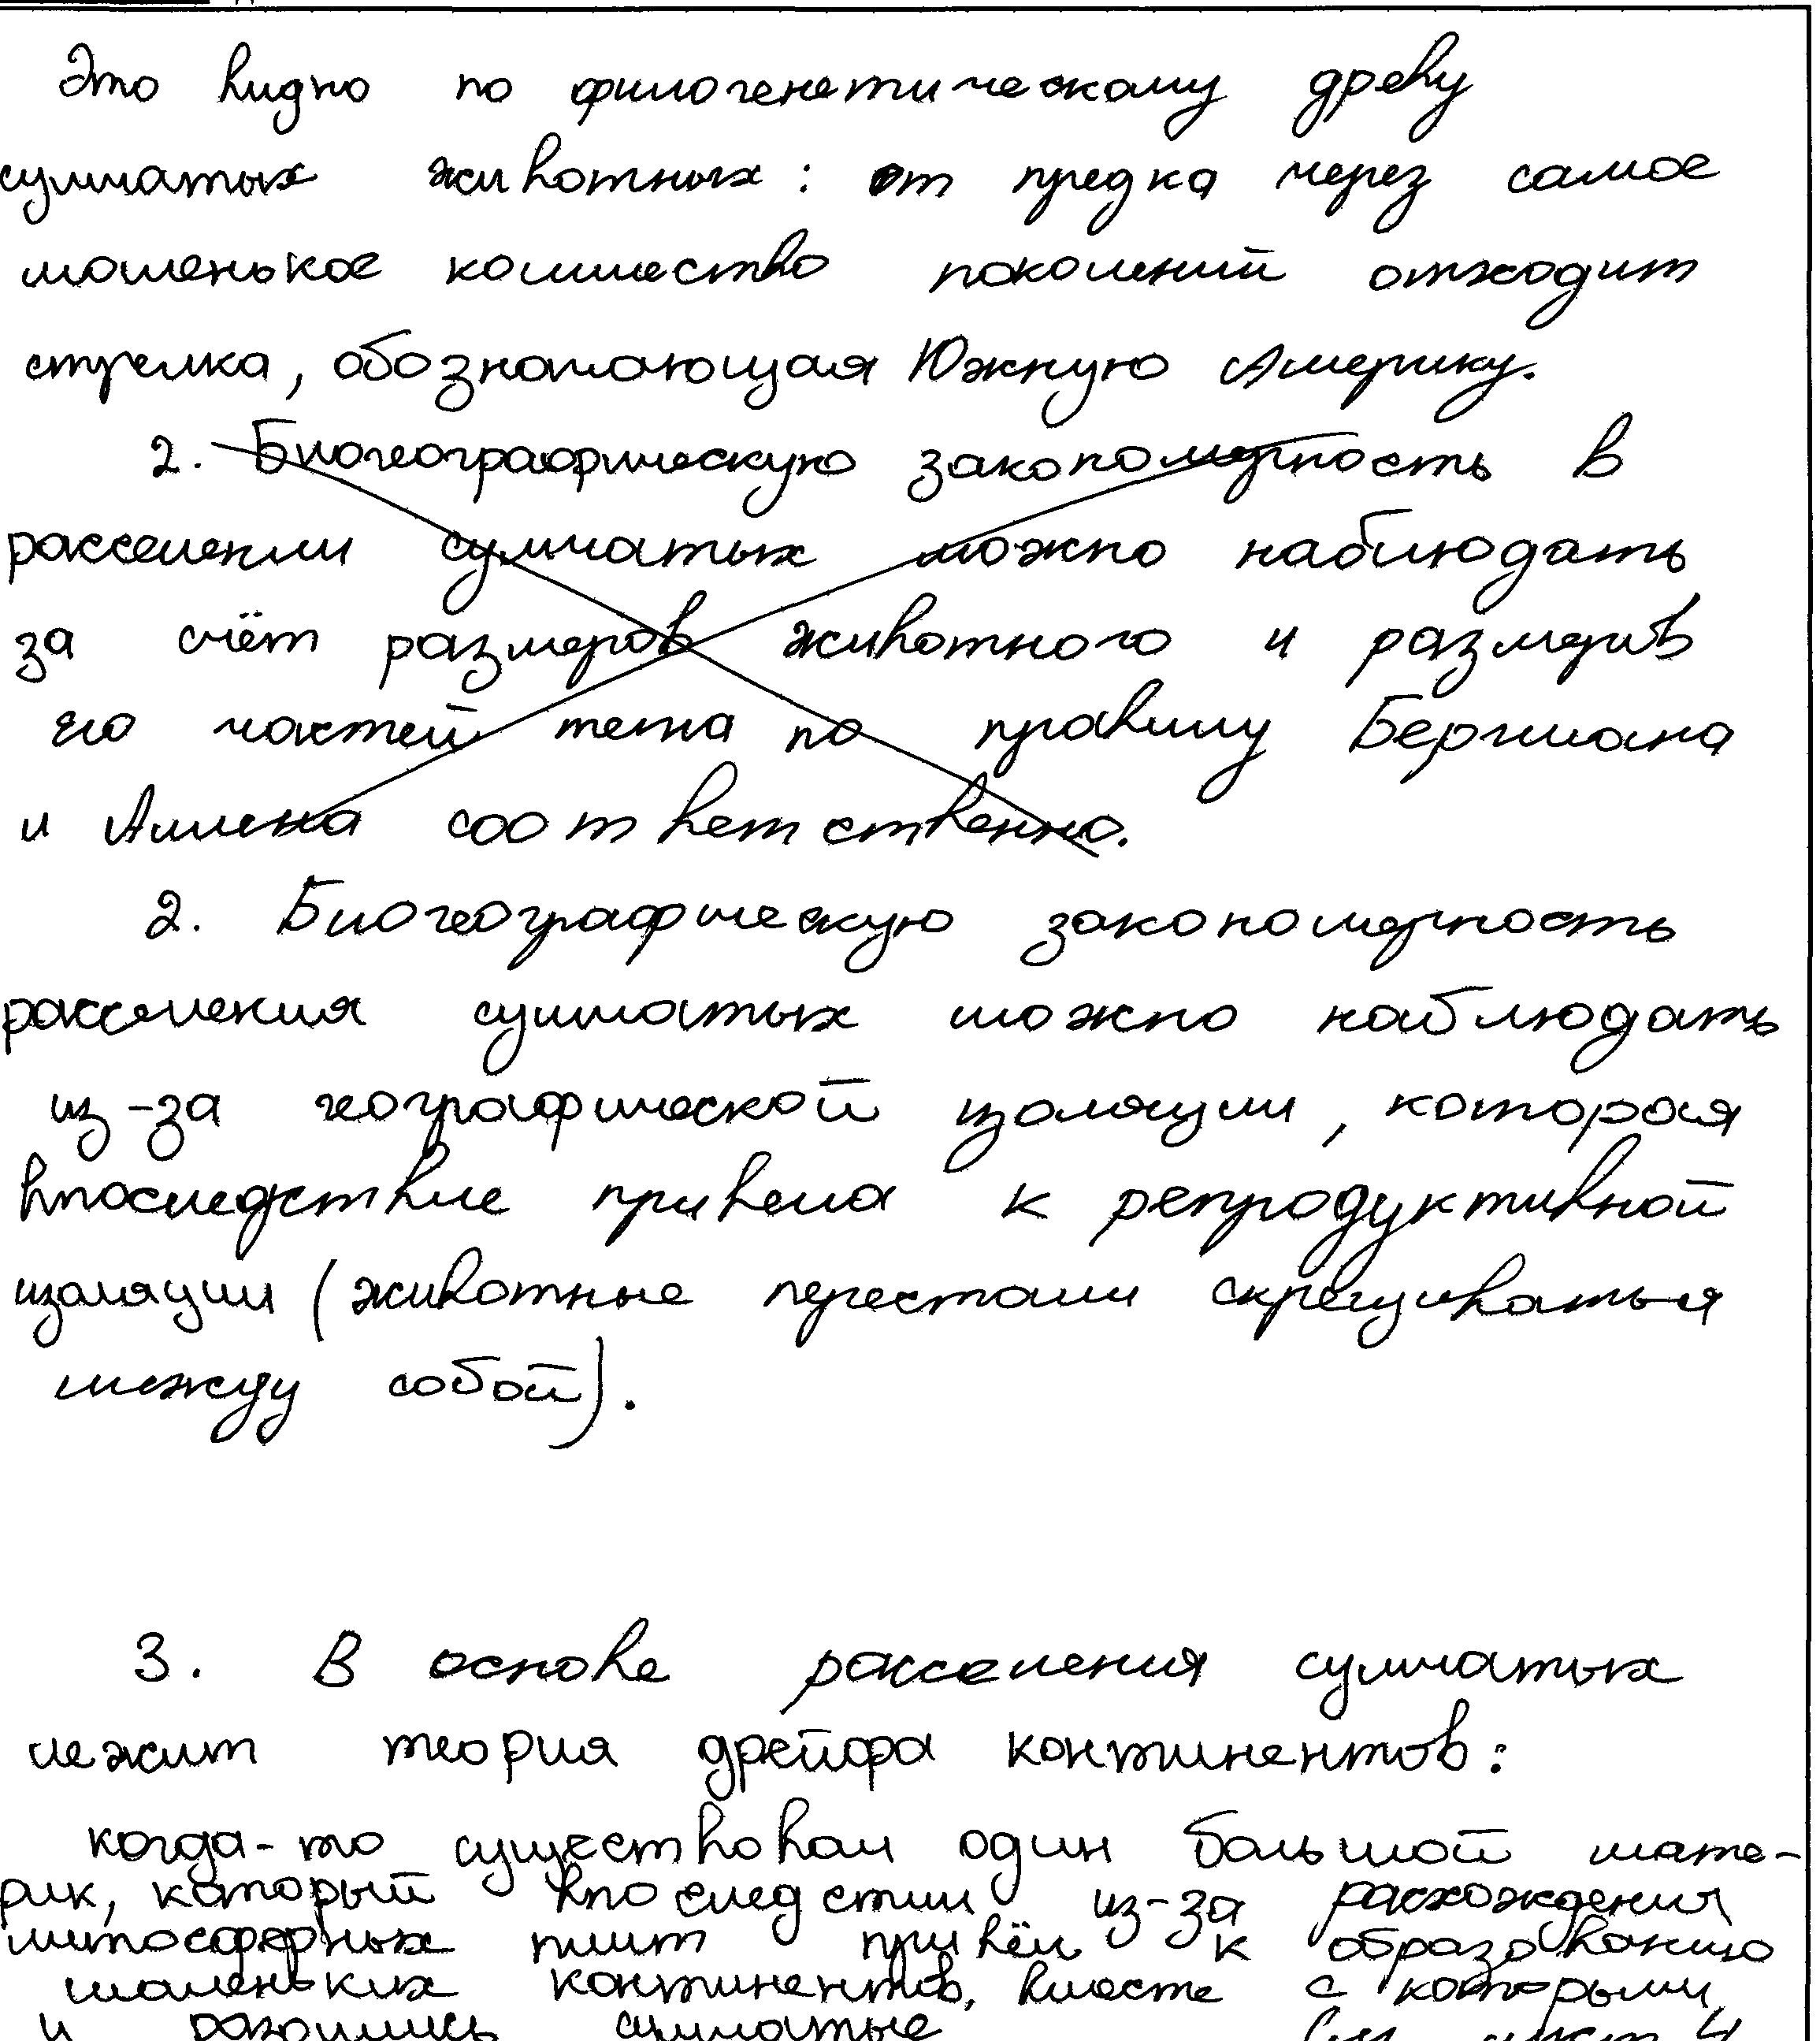 Это видно по филогенетическому древу
сумчатых животных: от предка через самое
маленькое количество поколений отходит
стрелка, обозначающая Южную Америку.
2. Биогеографическую закономерность в
расселении сумчатых можно наблюдать
за счёт размеров животного и размеров
его частей тела по правилу Бергмана
и Аллена соответственно.
2. Биогеографическую закономерность
расселения сумчатых можно наблюдать
из-за географической изоляции, которая
впоследствие привела к репродуктивной
изоляции (животные перестали скрещиваться
между собой).
3. В основе расселения сумчатых
лежит теория дрейфа континентов:
когда-то существовал один большой мате-
рик, который впоследстии из-за расхождения
литосферных плит привёл к образованию
маленьких континентов, вместе с которыми
и разошлись сумчатые